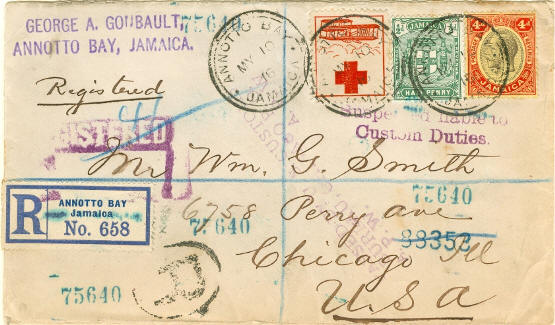 GEORGE A. GOUBAULT,
ANNOTTO BAY, JAMAICA.
75640
Registered
ANNOTTO BAY
MY 10
16
JAMAICA
JAMAICA
HALF PENNY
4d
4d
JAMAICA
liable to
Custom Duties.
41
Mr Wm. G. Smith
6758 Perry ave
Chicago Ill
U.S.A
R
ANNOTTO BAY
Jamaica
No. 658
75640
75640
88353
75640
R